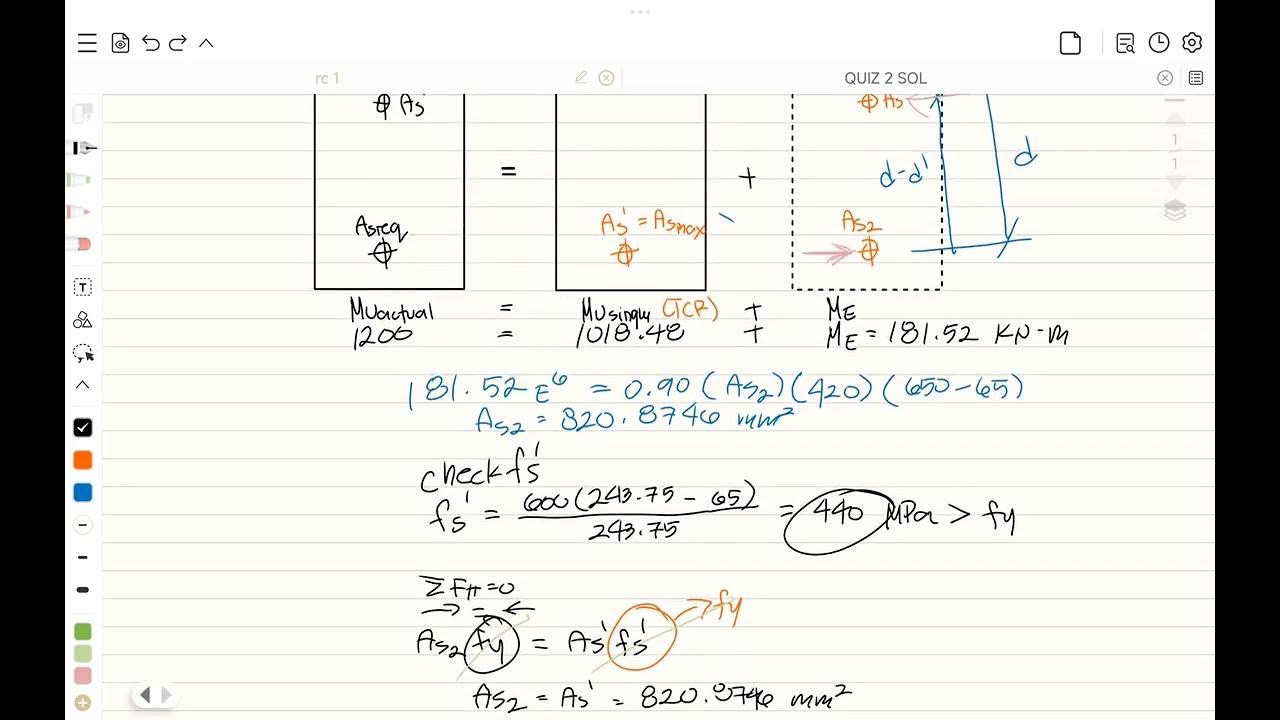 rc 1 QUIZ 2 SOL
As' As
= + d-d' d
Asreq As' = Asmax As2
1
1
T
Muactual = Musingly (TCR) + ME
1200 = 1018.48 + ME = 181.52 KN-m
181.52 E6 = 0.90 (As2)(420)(650-65)
As2 = 820.8746 mm²
check fs'
fs' = 600(243.75 - 65) / 243.75 = 440 MPa > fy
ΣFH=0
→ = ←
As2 fy = As' fs' → fy
As2 = As' = 820.8746 mm²